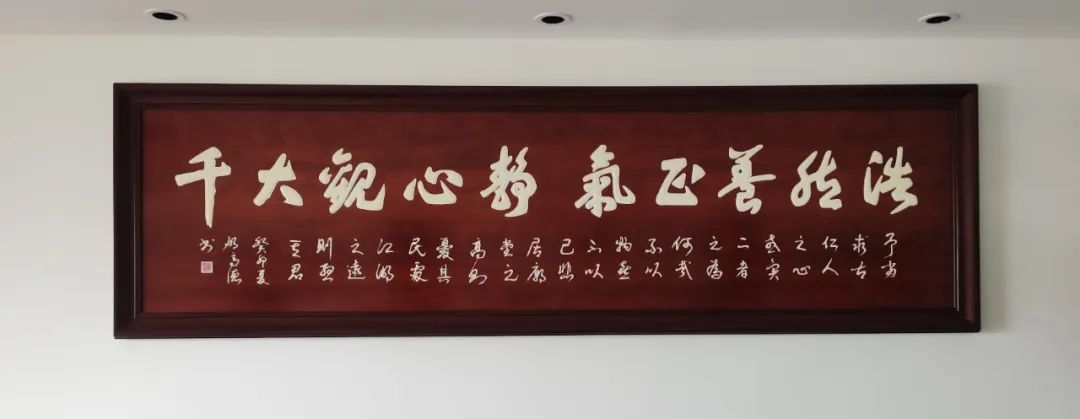 浩然養正氣 靜心觀大千
予嘗
求古
仁人
之心
或異
二者
之為
何哉
不以
物喜
不以
己悲
居廟
堂之
高則
憂其
民處
江湖
之遠
則憂
其君
癸卯夏
书